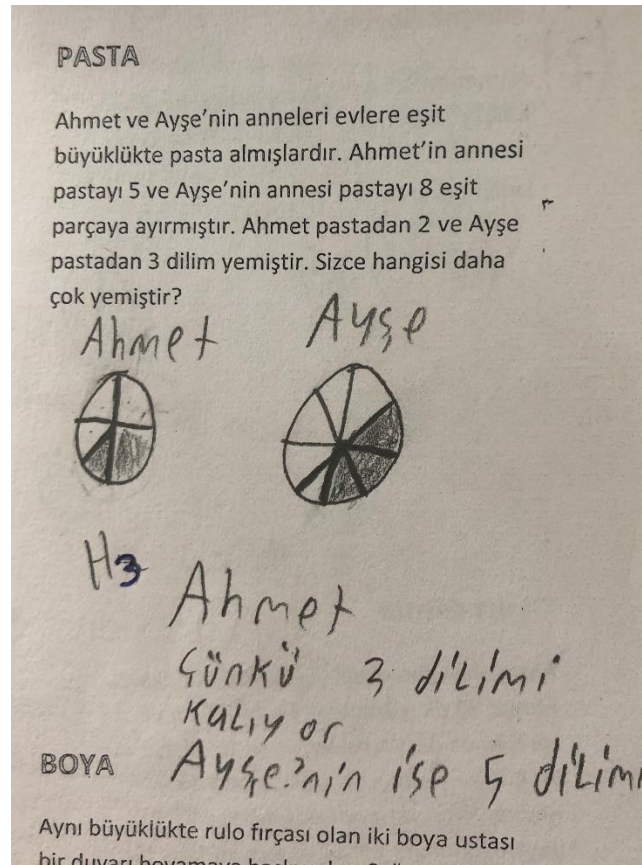 PASTA
Ahmet ve Ayşe'nin anneleri evlere eşit
büyüklükte pasta almışlardır. Ahmet'in annesi
pastayı 5 ve Ayşe'nin annesi pastayı 8 eşit
parçaya ayırmıştır. Ahmet pastadan 2 ve Ayşe
pastadan 3 dilim yemiştir. Sizce hangisi daha
çok yemiştir?
Ahmet Ayşe
H3
Ahmet
Çünkü 3 dilimi
kalıyor
Ayşe'nin ise 5 dilimi
BOYA
Aynı büyüklükte rulo fırçası olan iki boya ustası
bir duvarı boyamaya